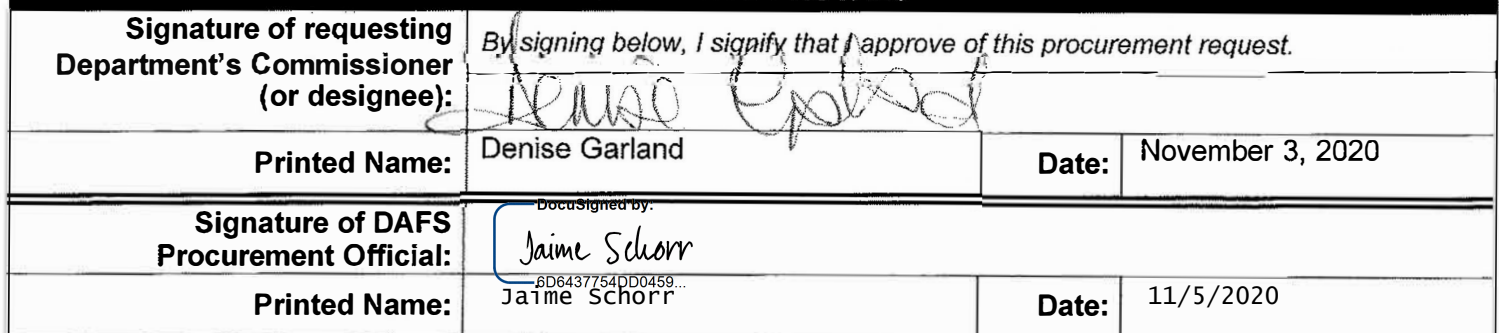 Signature of requesting
Department's Commissioner
(or designee):
By signing below, I signify that I approve of this procurement request.
Denise Garland
Printed Name:
Denise Garland
Date:
November 3, 2020
Signature of DAFS
Procurement Official:
DocuSigned by:
Jaime Schorr
6D6437754DD0459...
Printed Name:
Jaime Schorr
Date:
11/5/2020